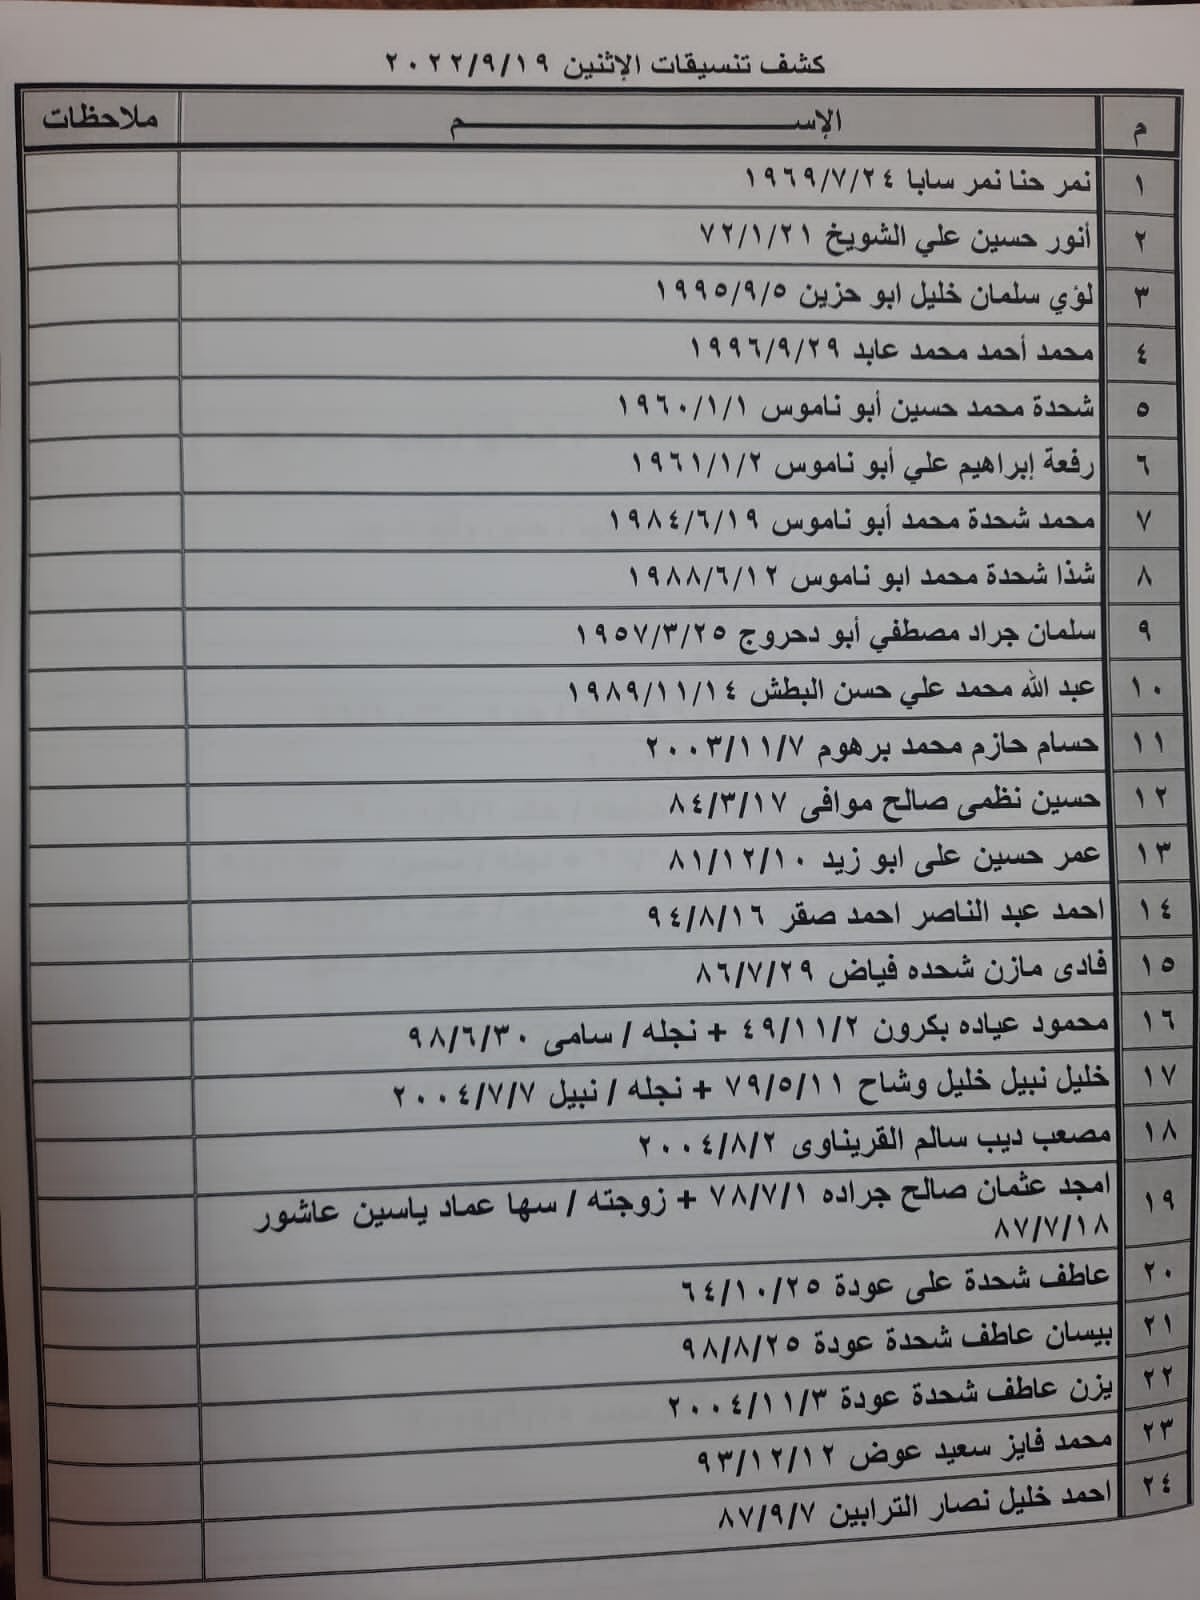 كشف تنسيقات الإثنين ٢٠٢٢/٩/١٩
م الإســـــم ملاحظات
١ نمر حنا نمر سابا ١٩٦٩/٧/٢٤
٢ أنور حسين علي الشويخ ٧٢/١/٢١
٣ لؤي سلمان خليل ابو حزين ١٩٩٥/٩/٥
٤ محمد أحمد محمد عابد ١٩٩٦/٩/٢٩
٥ شحدة محمد حسين أبو ناموس ١٩٦٠/١/١
٦ رفعة إبراهيم علي أبو ناموس ١٩٦١/١/٢
٧ محمد شحدة محمد أبو ناموس ١٩٨٤/٦/١٩
٨ شذا شحدة محمد ابو ناموس ١٩٨٨/٦/١٢
٩ سلمان جراد مصطفي أبو دحروج ١٩٥٧/٣/٢٥
١٠ عبد الله محمد علي حسن البطش ١٩٨٩/١١/١٤
١١ حسام حازم محمد برهوم ٢٠٠٣/١١/٧
١٢ حسين نظمى صالح موافى ٨٤/٣/١٧
١٣ عمر حسين على ابو زيد ٨١/١٢/١٠
١٤ احمد عبد الناصر احمد صقر ٩٤/٨/١٦
١٥ فادى مازن شحده فياض ٨٦/٧/٢٩
١٦ محمود عياده بكرون ٤٩/١١/٢ + نجله / سامى ٩٨/٦/٣٠
١٧ خليل نبيل خليل وشاح ٧٩/٥/١١ + نجله / نبيل ٢٠٠٤/٧/٧
١٨ مصعب ديب سالم القريناوى ٢٠٠٤/٨/٢
١٩ امجد عثمان صالح جراده ٧٨/٧/١ + زوجته / سها عماد ياسين عاشور
٨٧/٧/١٨
٢٠ عاطف شحدة على عودة ٦٤/١٠/٢٥
٢١ بيسان عاطف شحدة عودة ٩٨/٨/٢٥
٢٢ يزن عاطف شحدة عودة ٢٠٠٤/١١/٣
٢٣ محمد فايز سعيد عوض ٩٣/١٢/١٢
٢٤ احمد خليل نصار الترابين ٨٧/٩/٧